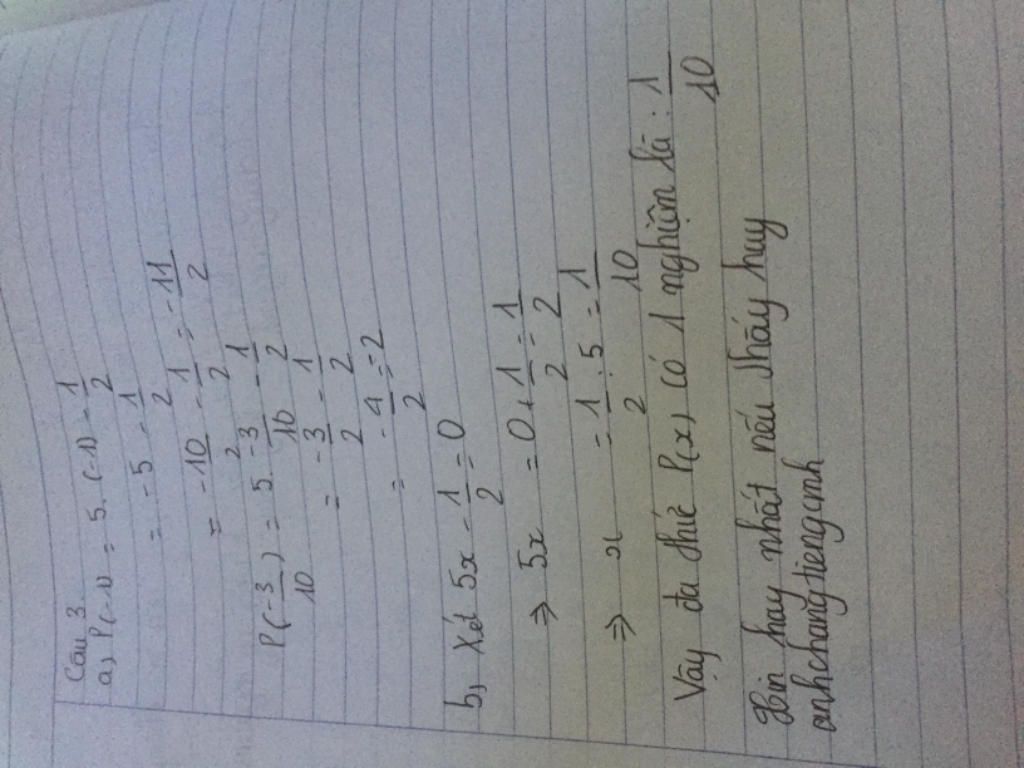 Câu 3
a, P(-1) = 5. (-1) - 1/2
= -5 - 1/2
= -10/2 - 1/2 = -11/2
P(-3/10) = 5. -3/10 - 1/2
= -3/2 - 1/2
= -4/2 = 2
b, Xét 5x - 1/2 = 0
⇒ 5x = 0 + 1/2 = 1/2
⇒ x = 1/2 : 5 = 1/10
Vậy đa thức P(x) có 1 nghiệm là : 1/10
Xin hay nhất nếu thấy hay
anhchangtiengamh